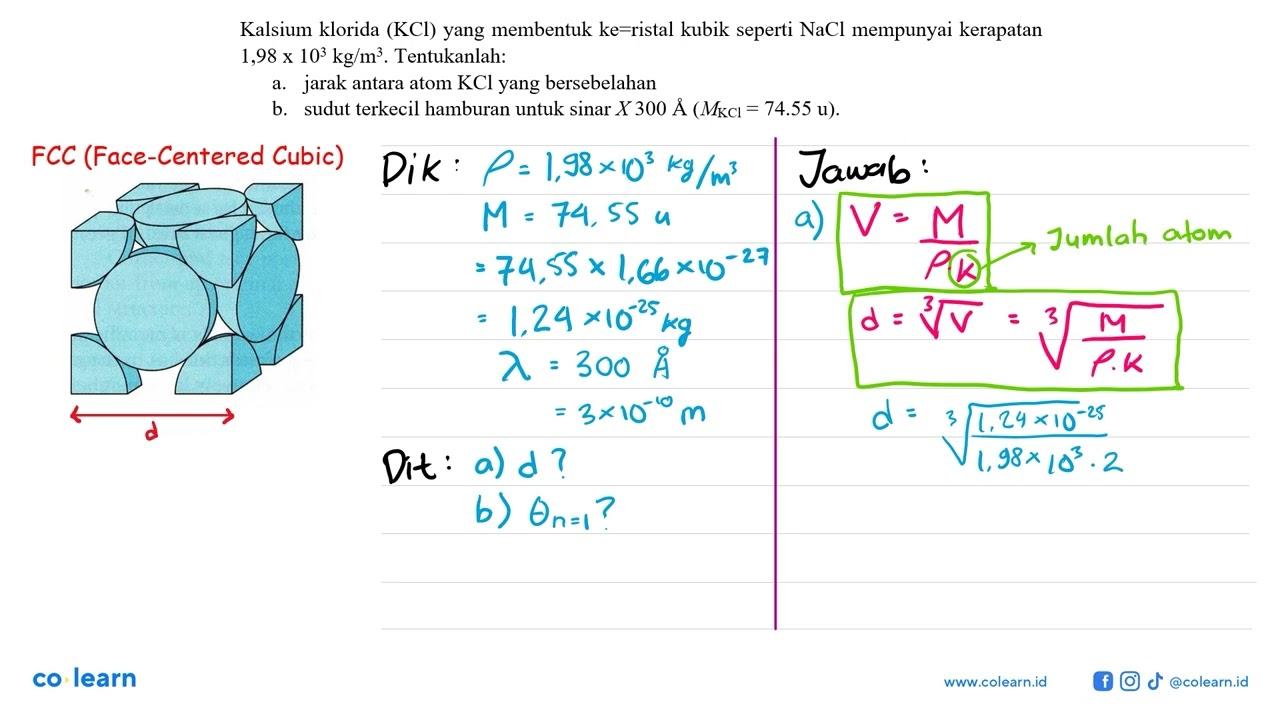 Kalsium klorida (KCl) yang membentuk ke=ristal kubik seperti NaCl mempunyai kerapatan
1,98 x 10³ kg/m³. Tentukanlah:
a. jarak antara atom KCl yang bersebelahan
b. sudut terkecil hamburan untuk sinar X 300 Å (M_KCl = 74.55 u).
FCC (Face-Centered Cubic)
d
Dik : ρ = 1,98 × 10³ kg/m³
M = 74,55 u
= 74,55 × 1,66 × 10⁻²⁷
= 1,24 × 10⁻²⁵ kg
λ = 300 Å
= 3 × 10⁻¹⁰ m
Dit : a) d ?
b) θₙ₌₁ ?
Jawab :
a) V = M / ρ.k → Jumlah atom
d = ³√V = ³√(M / ρ.k)
d = ³√(1,24 × 10⁻²⁵ / 1,98 × 10³ . 2)
co learn
www.colearn.id
@colearn.id